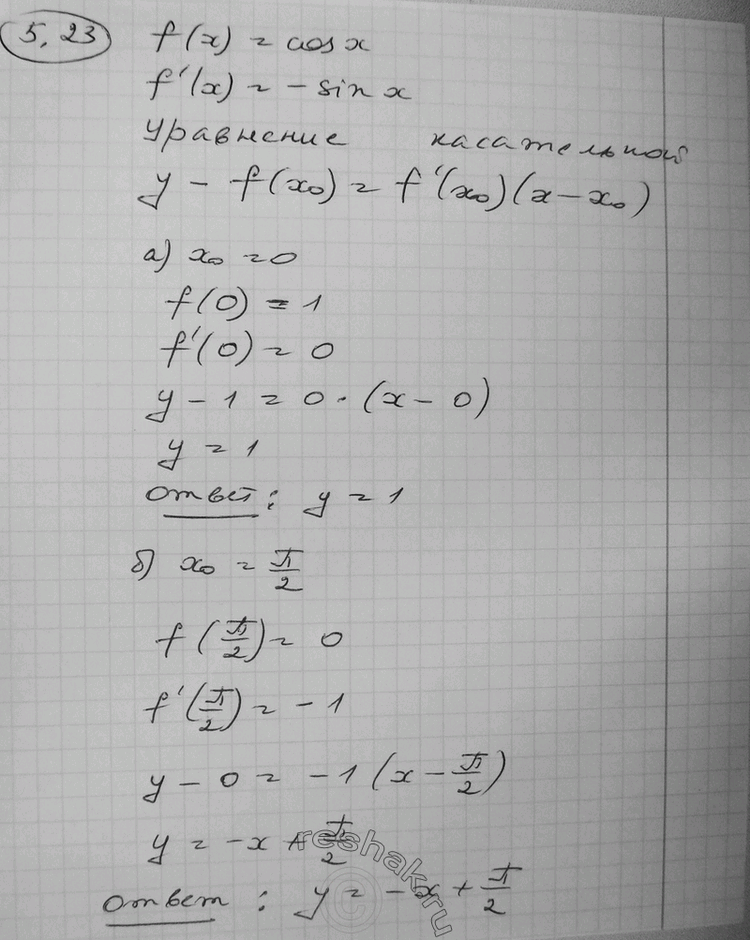 5.23 f(x) = cos x
f'(x) = - sin x
Уравнение касательной
y - f(x₀) = f'(x₀)(x - x₀)
а) x₀ = 0
f(0) = 1
f'(0) = 0
y - 1 = 0 · (x - 0)
y = 1
Ответ: y = 1
б) x₀ = π/2
f(π/2) = 0
f'(π/2) = - 1
y - 0 = - 1 (x - π/2)
y = - x + π/2
Ответ: y = - x + π/2
reshak.ru